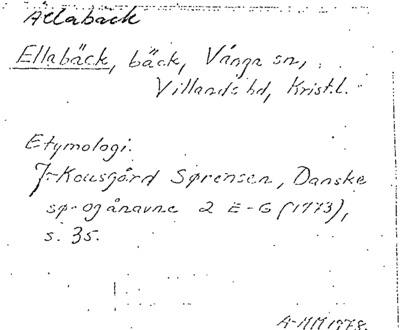 Ällabäck
Ellabäck, bäck, Vånga sn,
Villands hd, Krist.l.
Etymologi.
J. Kousgård Sørensen, Danske
sø- og ånavne 2 E-G (1973),
s. 35.
A-MM 1978.